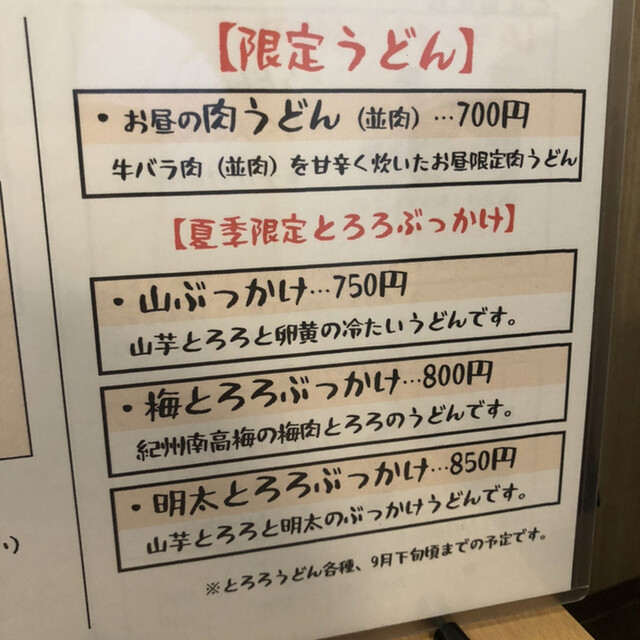 【限定うどん】
・お昼の肉うどん（並肉）…700円
牛バラ肉（並肉）を甘辛く炊いたお昼限定肉うどん
【夏季限定とろろぶっかけ】
・山ぶっかけ…750円
山芋とろろと卵黄の冷たいうどんです。
・梅とろろぶっかけ…800円
紀州南高梅の梅肉とろろのうどんです。
・明太とろろぶっかけ…850円
山芋とろろと明太のぶっかけうどんです。
※とろろうどん各種、9月下旬頃までの予定です。